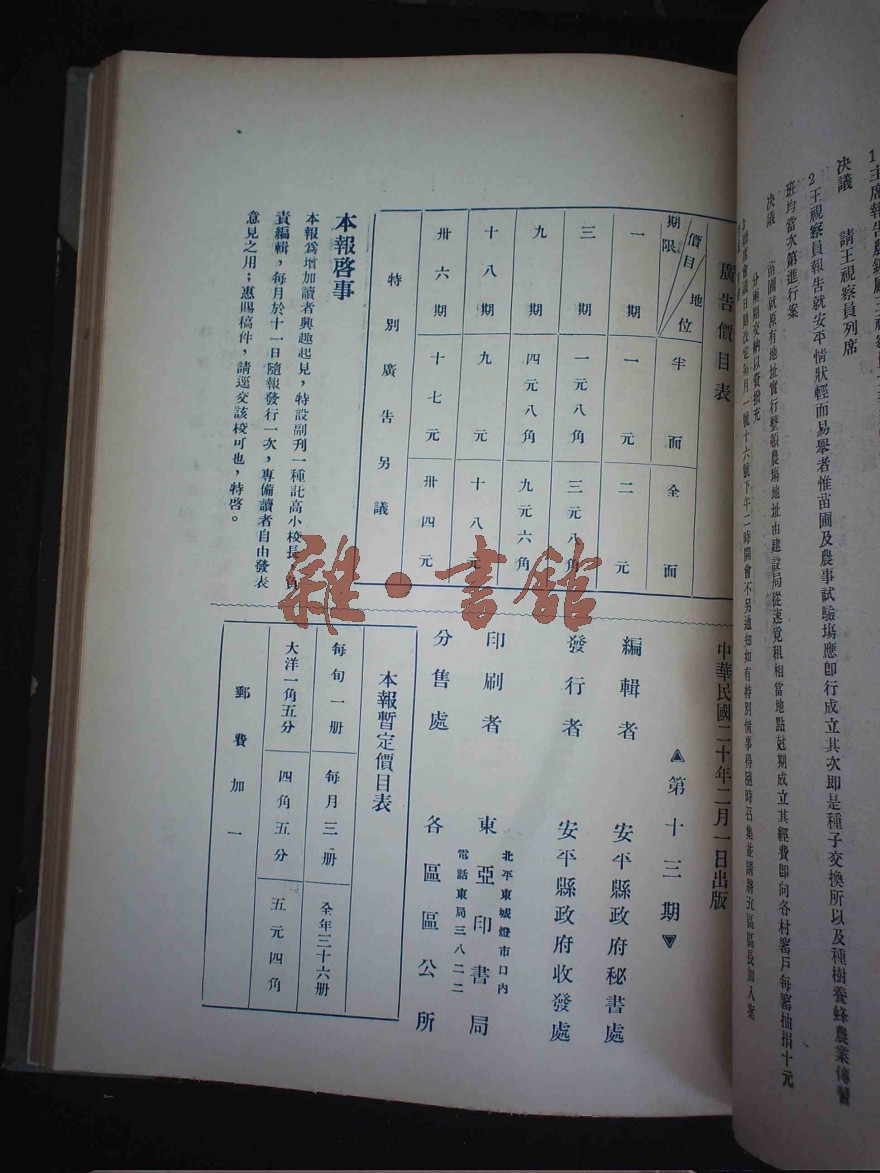 決議　請王視察員列席
2王視察員報告就安平情狀輕而易舉者惟苗圃及農事試驗塲應卽行成立其次即是種子交換所以及種樹養蜂農業傳習
班均當次第進行案
決議　苗圃就原有地址實行整頓農塲地址由建設局從速覓租相當地點尅期成立其經費卽向各村窰戶每窰抽捐十元
分兩期交納以資撥充
會議日期改定每月一號十六號下午二時開會不另通知如有特別情事得隨時召集並請將五區區長加入案
廣告價目表
價目　地位　期限　半面　全面
一期　一元　二元
三期　一元八角　三元八角
九期　四元八角　九元六角
十八期　九元　十八元
卅六期　十七元　卅四元
特別廣告另議
本報啓事
本報爲增加讀者興趣起見，特設副刊一種託高小校長 負
責編輯，每月於十一日隨報發行一次，專備讀者自由發表
意見之用；惠賜稿件，請逕交該校可也，特啓。
中華民國二十年二月一日出版
第十三期
編輯者　安平縣政府秘書處
發行者　安平縣政府收發處
北平東城燈市口內
印刷者　東亞印書局
電話東局三八二二
分售處　各區區公所
本報暫定價目表
每旬一册　每月三册　全年三十六册
大洋一角五分　四角五分　五元四角
郵費加一
雜·書館